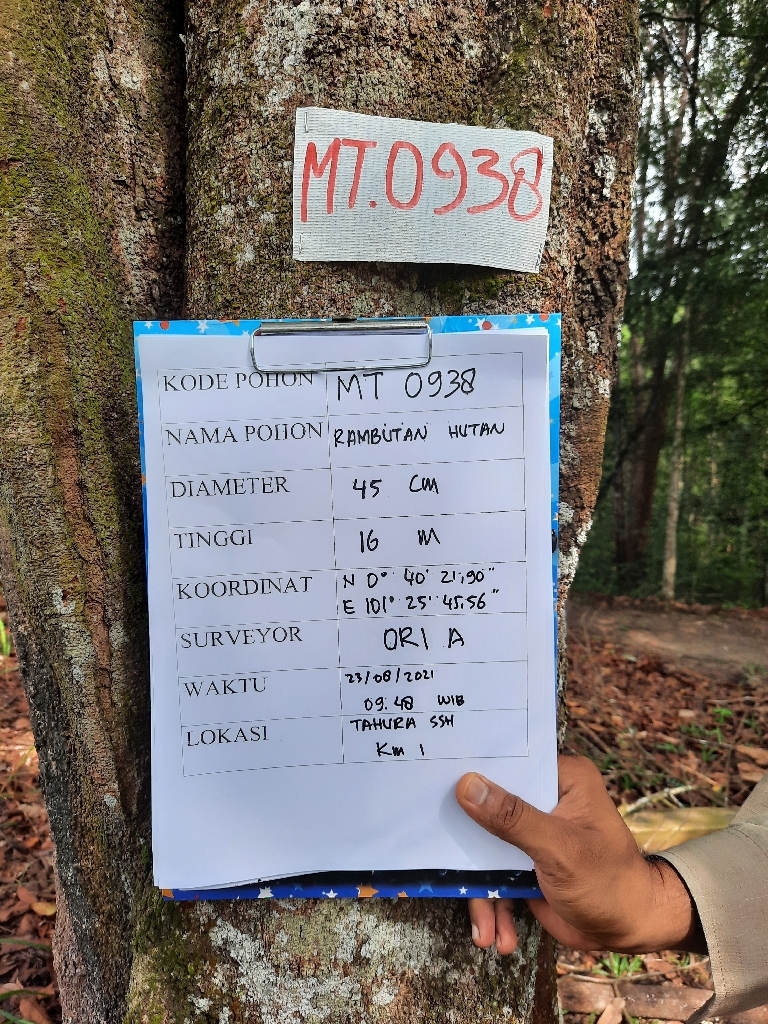 MT.0938
KODE POHON MT 0938
NAMA POHON RAMBUTAN HUTAN
DIAMETER 45 CM
TINGGI 16 M
KOORDINAT N 0° 40' 21,90"
E 101° 25' 45,56"
SURVEYOR ORI A
WAKTU 23/08/2021
09.48 WIB
LOKASI TAHURA SSH
Km 1